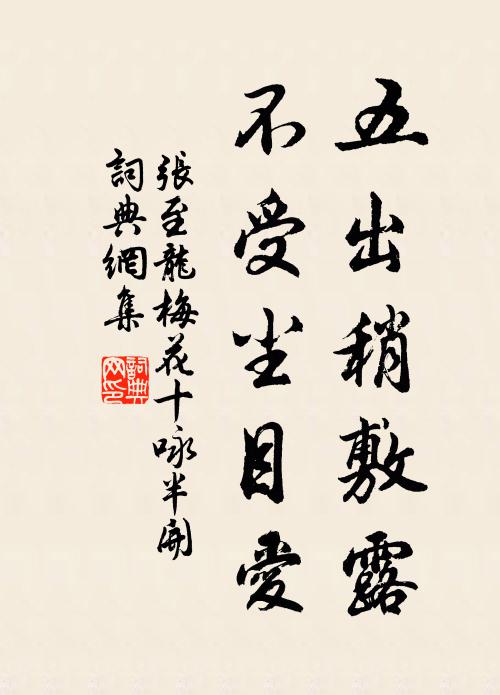 五出稍敷露
不受尘目愛
張至龍梅花十咏半開
詞典網集
詞典網印